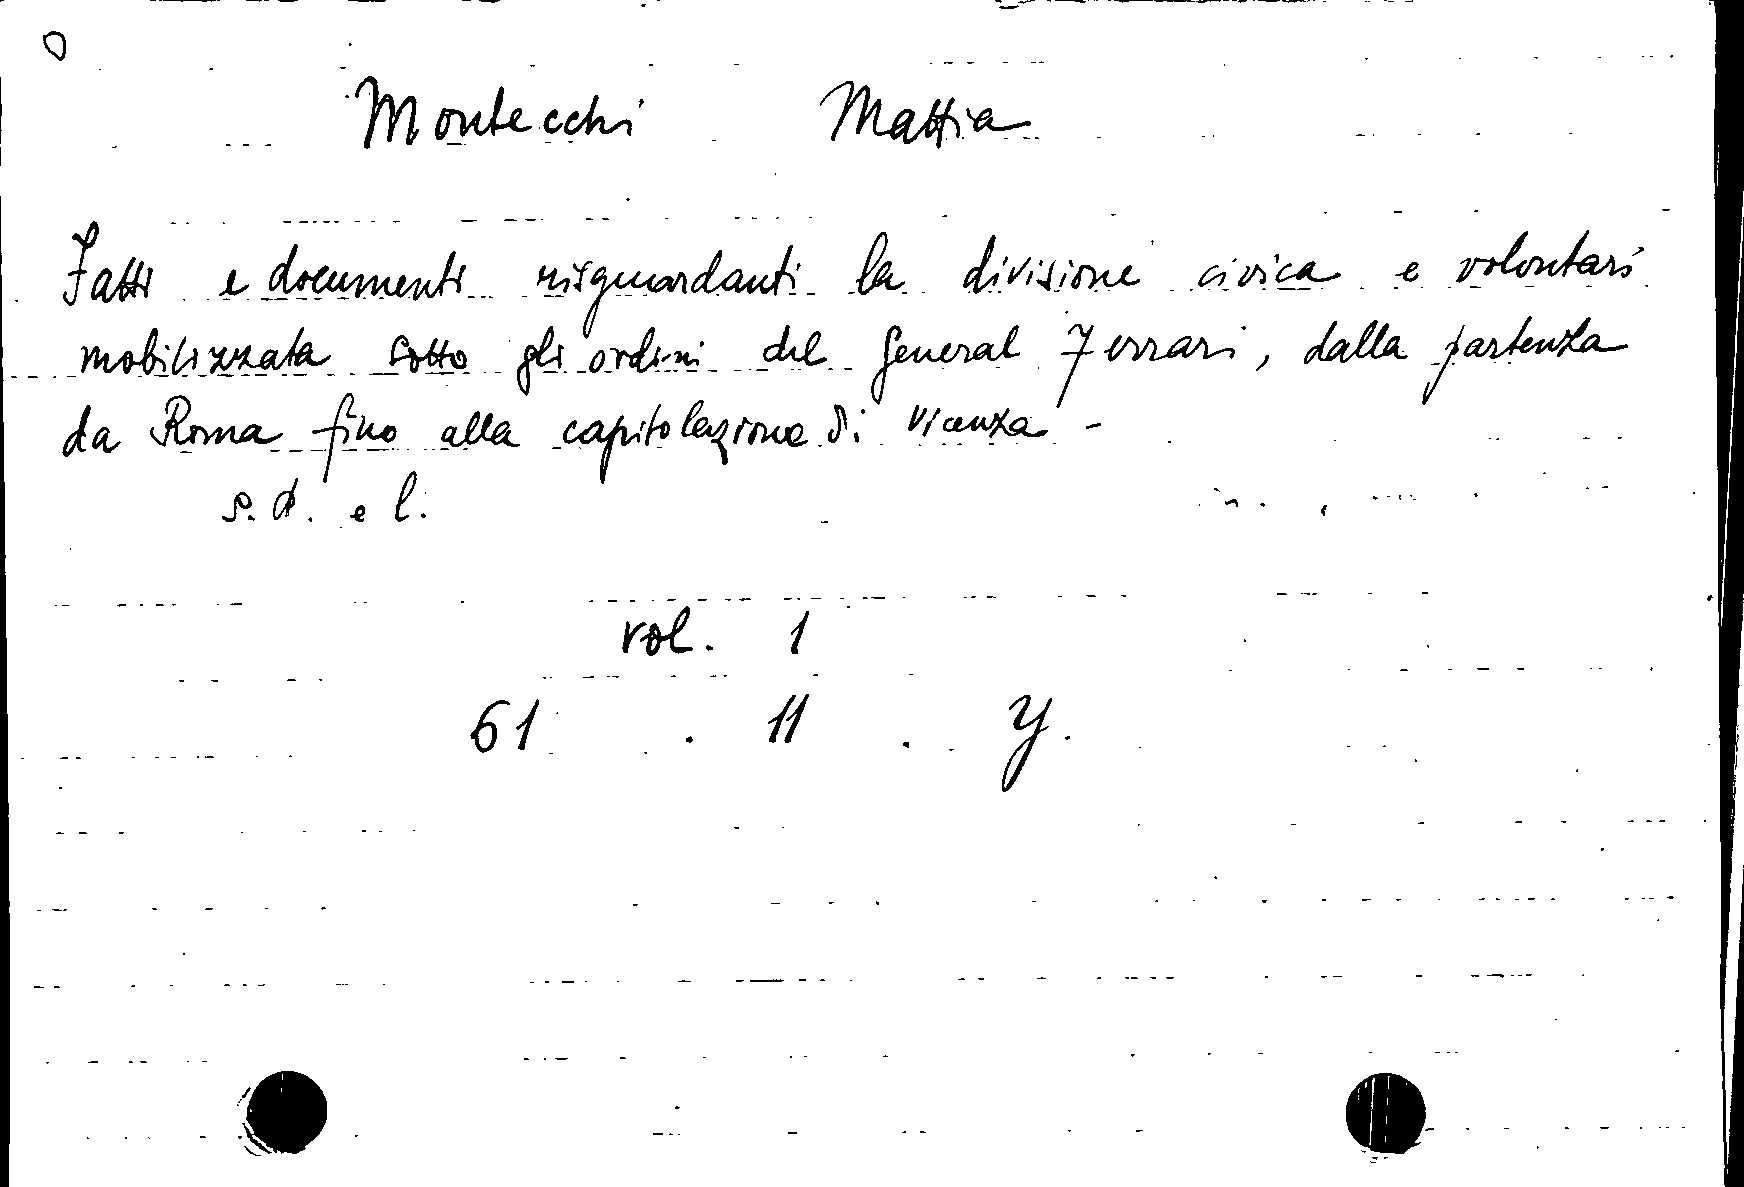 Montecchi Mattia
Fatti e documenti risguardanti la divisione civica e volontari
mobilizzata sotto gli ordini del General Ferrari, dalla partenza
da Roma fino alla capitolazione di Vicenza -
s.d. e l.
vol. 1
61 . 11 . Y.